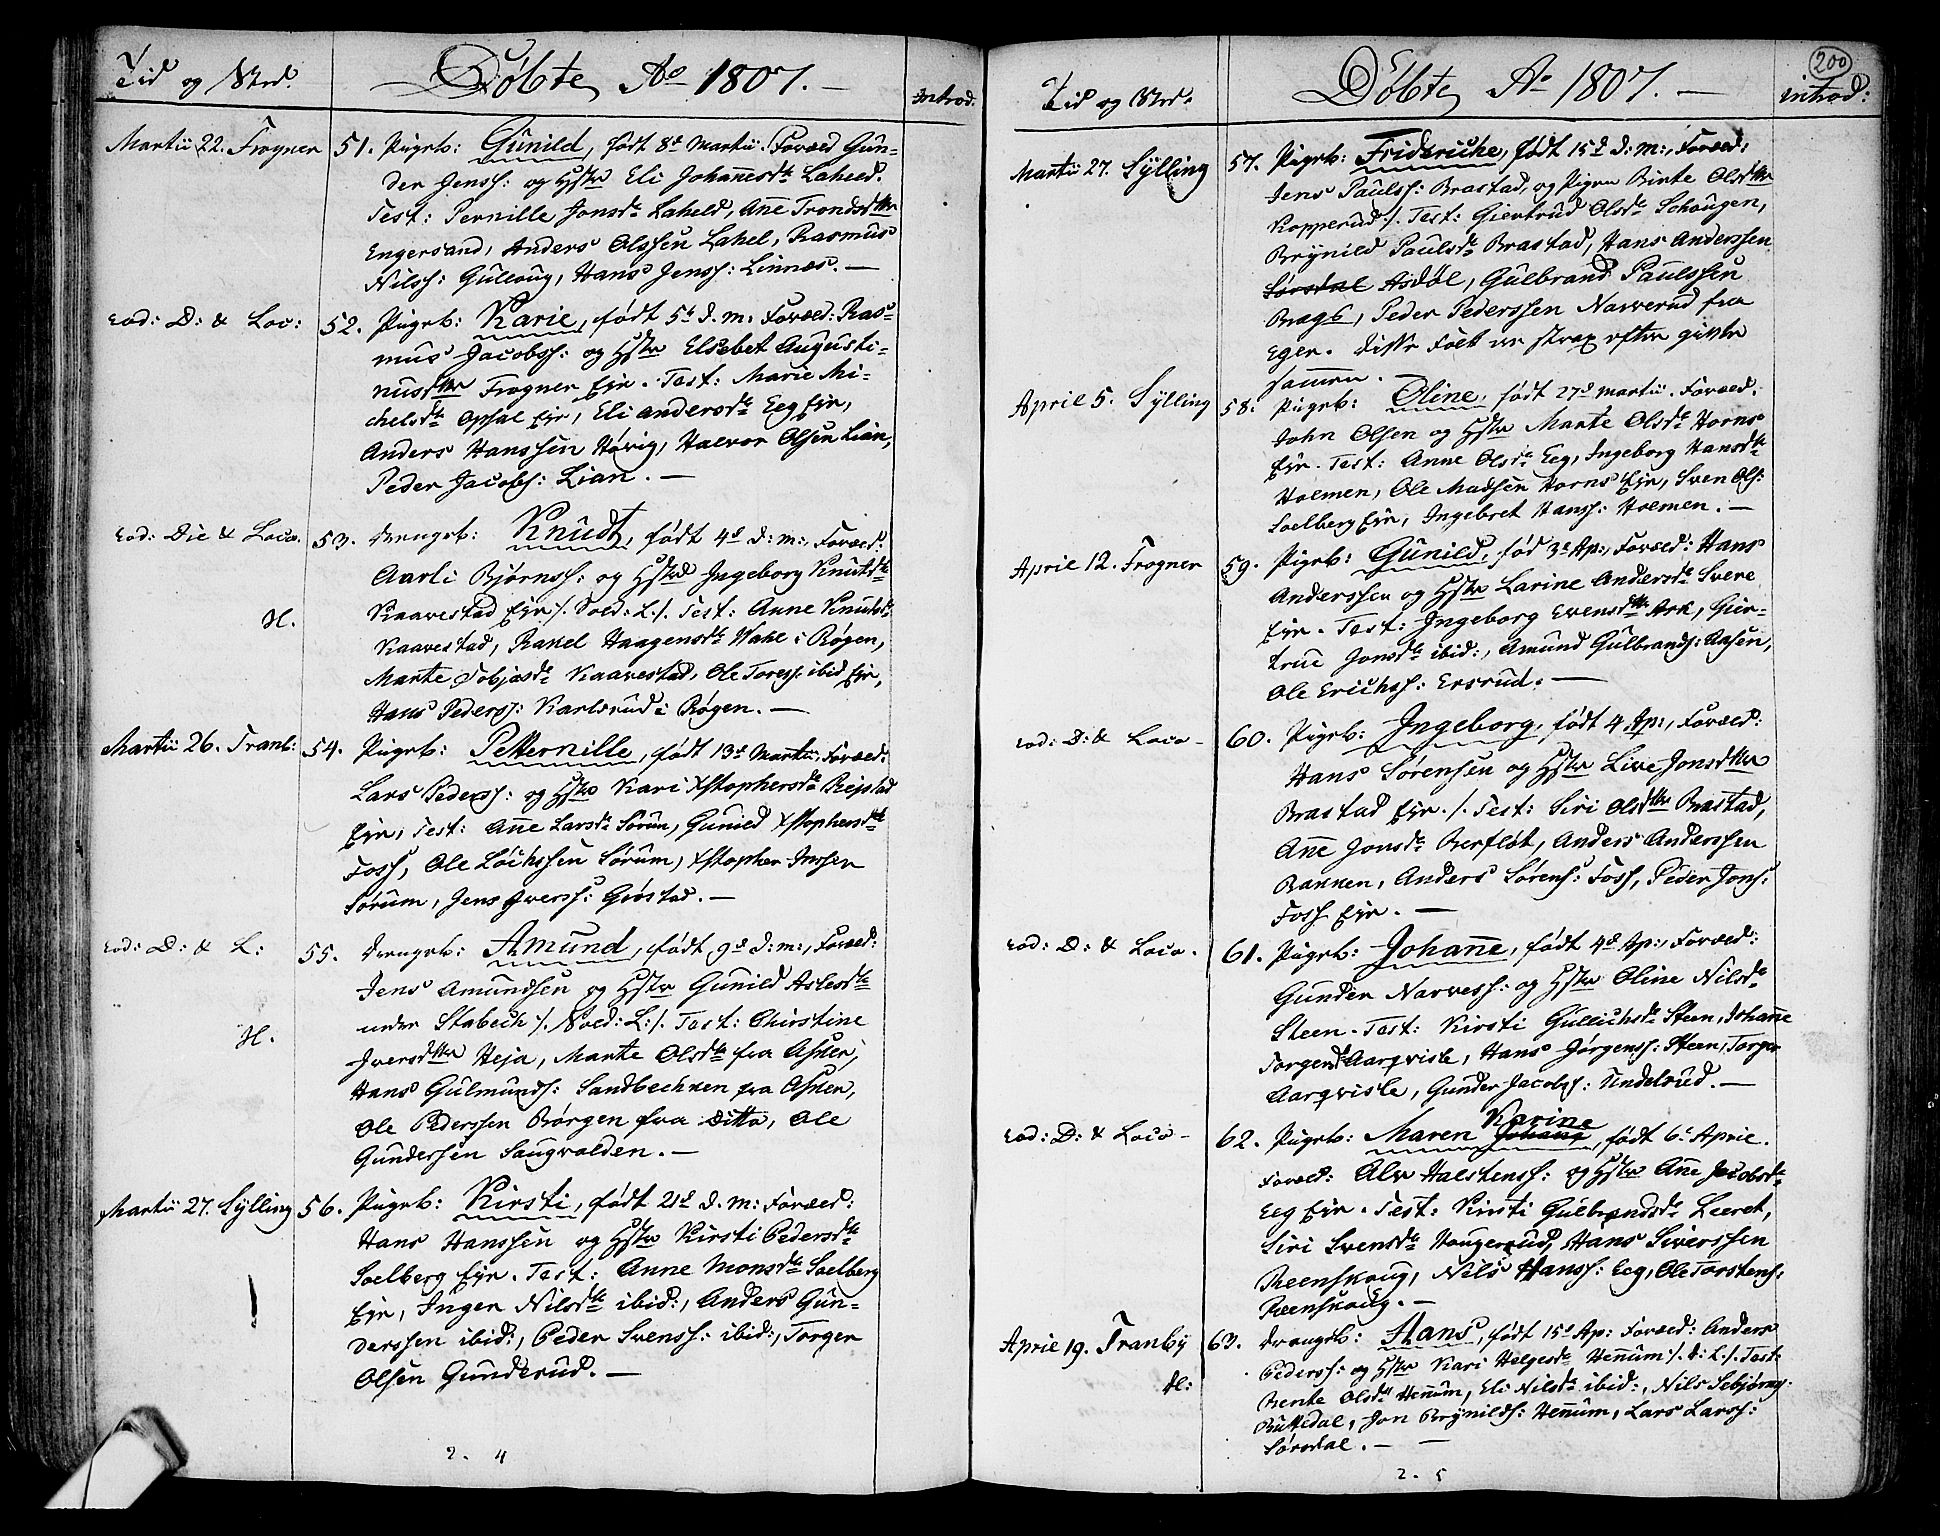 Tid og Sted.
Döbte, Ao 1807. —
Introd.
Martii 22. Frogner
51. Pigeb: Gunild, født 8de Martii. Foræd Gun-
der Jenss: og Hstr Eli Johanesdtr Laheld.
Test: Pernille Jonsdtr Laheld, Ane Trondsdttr
Engersand, Anders Olssen Lahel, Rasmus
Nilss: Gulloug, Hans Jenss: Linnæs. —
eod: D: & Loc:
52. Pigeb: Karie, født 5t d. m: Foræd: Ras-
mus Jacobss: og Hstr Elsebet Augusti-
nusdttr Frogner Eje. Test: Marie Mi-
chelsdtr Opsal Eje, Eli andersdtr Eeg Eje,
Anders Hanssen Høvig, Halvor Olsen Lian,
Peder Jacobs: Lian. —
eod: Die & Loco.
53. Drengeb: Knudt, født 4d d: m:, Foræd:
Aarli Bjørnss: og Hstr Ingeborg Knutsdtr
H.
Kaavestad Eje ∕. Sold: L.∕. Test: Anne Knutsd
Kaavestad, Rakel Haagensdtr Wahl i Røgen,
Marte Tobjasdtr Kaavestad, Ole Toress: ibid Eje,
Hans Pederss: Karlsrud i Røgen. —
Martii 26. Tranb:
54. Pigeb: Petternille, født 13d Martii, Foræd:
Lars Pederss: og Hstr Kari Xstophersdtr Rejstad
Eje, Test: Ane Larsdtr Sørum, Gunild Xstophersdtr
Foss, Ole Löchssen Sørum, Xstopher Jenssen
Sørum, Jens Iverss: Gröstad. —
eod: D: & L:
55. Drengeb: Amund, født 9d d: m:, Foræd:
Jens Amundsen og Hstr Gunild Aslesdtr
H.
under Stabech ∕. Nold: L:∕. Test: Christine
Iversdttr Heja, Marte Olsdtr fra Asker,
Hans Gulmunds: Sandbechken fra Asker,
Ole Pederssen Børgen fra Ditto, Ole
Gunderssen Saugvolden. —
Martii 27. Sylling
56. Pigeb: Kirsti, født 21d d. m: Foræd:
Hans Hanssen og Hstr Kirsti Pedersdtr
Solberg Eje. Test: Anne Monsdtr Solberg
Eje, Inger Nilsdtr ibid:, Anders Gun-
derssen ibid:, Peder Svenss: ibid:, Torger
Olsen Gunderud. —
2. 4
200
Tid og Sted.
Döbte, Ao 1807. —
introd:
Martii 27. Sylling
57. Pigeb: Frideriche, født 15d d: m:, Foræd:
Jens Paulss: Brastad, og Pigen Birte Olsdttr
Kopperud ∕. Test: Giertrud Olsdtr Schougen,
Brynild Paulsdtr Brastad, Hans Anderssen
Sørsdal Asdøl, Gulbrand Paulssen
Brag6, Peder Pederssen Narverud fra
Eger. Disse Folk er strax efter gifte
sammen. —
April 5. Sylling
58. Pigeb: Oline, født 27d martii. Foræd:
John Olsen og Hstr Marte Olsdtr Horns
Eje. Test: Anne Olsdtr Eeg, Ingeborg Hansdtr
Holmen, Ole Madsen Horns Eje, Sven Ols:
Solberg Eje, Ingebret Hanss: Holmen. —
April 12. Frogner
59. Pigeb: Gunild, fød 3d Ap:, Foræld: Hans
Anderssen og Hstr Larine Andersdtr Svere
Eje. Test: Ingeborg Evensdttr Ark, Gier-
true Jonsdtr ibid:, Amund Gulbrands: Aasen,
Ole Erichss: Ersrud. —
eod: D: & Loco —
60. Pigeb: Ingeborg, født 4 Ap:, Foræd:
Hans Sørensen og Hstr Live Jonsdttr
Brastad Eje. ∕. Test: Siri Olsdttr Brastad,
Ane Jonsdtr Berfløt, Anders Anderssen
Bakken, Anders Sørens: Foss, Peder Jons:
Foss Eje. —
eod: D: & Loco.
61. Pigeb: Johane, født 4d Ap:, Foræd:
Gunder Narvess: og Hstr Oline Nilsdtr
Steen. Test: Kirsti Gullichsdtr Steen, Johane
Torgersd Aarqvisle, Hans Jörgenss: Steen, Torger
Aarqvisle, Gunder Jacobss: Undelrud. —
eod: D: & Loco —
Karine
62. Pigeb: Maren Johane, født 6t Aprile.
Foræd: Alv Halstenss: og Hstr Ane Jacobsdtr
Eeg Eje. Test: Kirsti Gulbrandsdtr Leeret,
Siri Svensdtr Hougerud, Hans Siverssen
Reenskoug, Nils Hanss: Eeg, Ole Torstens:
Reenskoug. —
April 19. Tranby
63. Drengeb: Hans, født 15d Ap: Foræd: Anders
Pederss: og Hstr Kari Helgesdtr Henum ∕. d: L.∕. Test:
H:
Bente Olsdtr Henum, Eli Nilsdtr ibid:, Nils Sebjörns:
Buttedal, Jon Brynilds: Henum, Lars Larss:
Sørsdal. —
2. 5